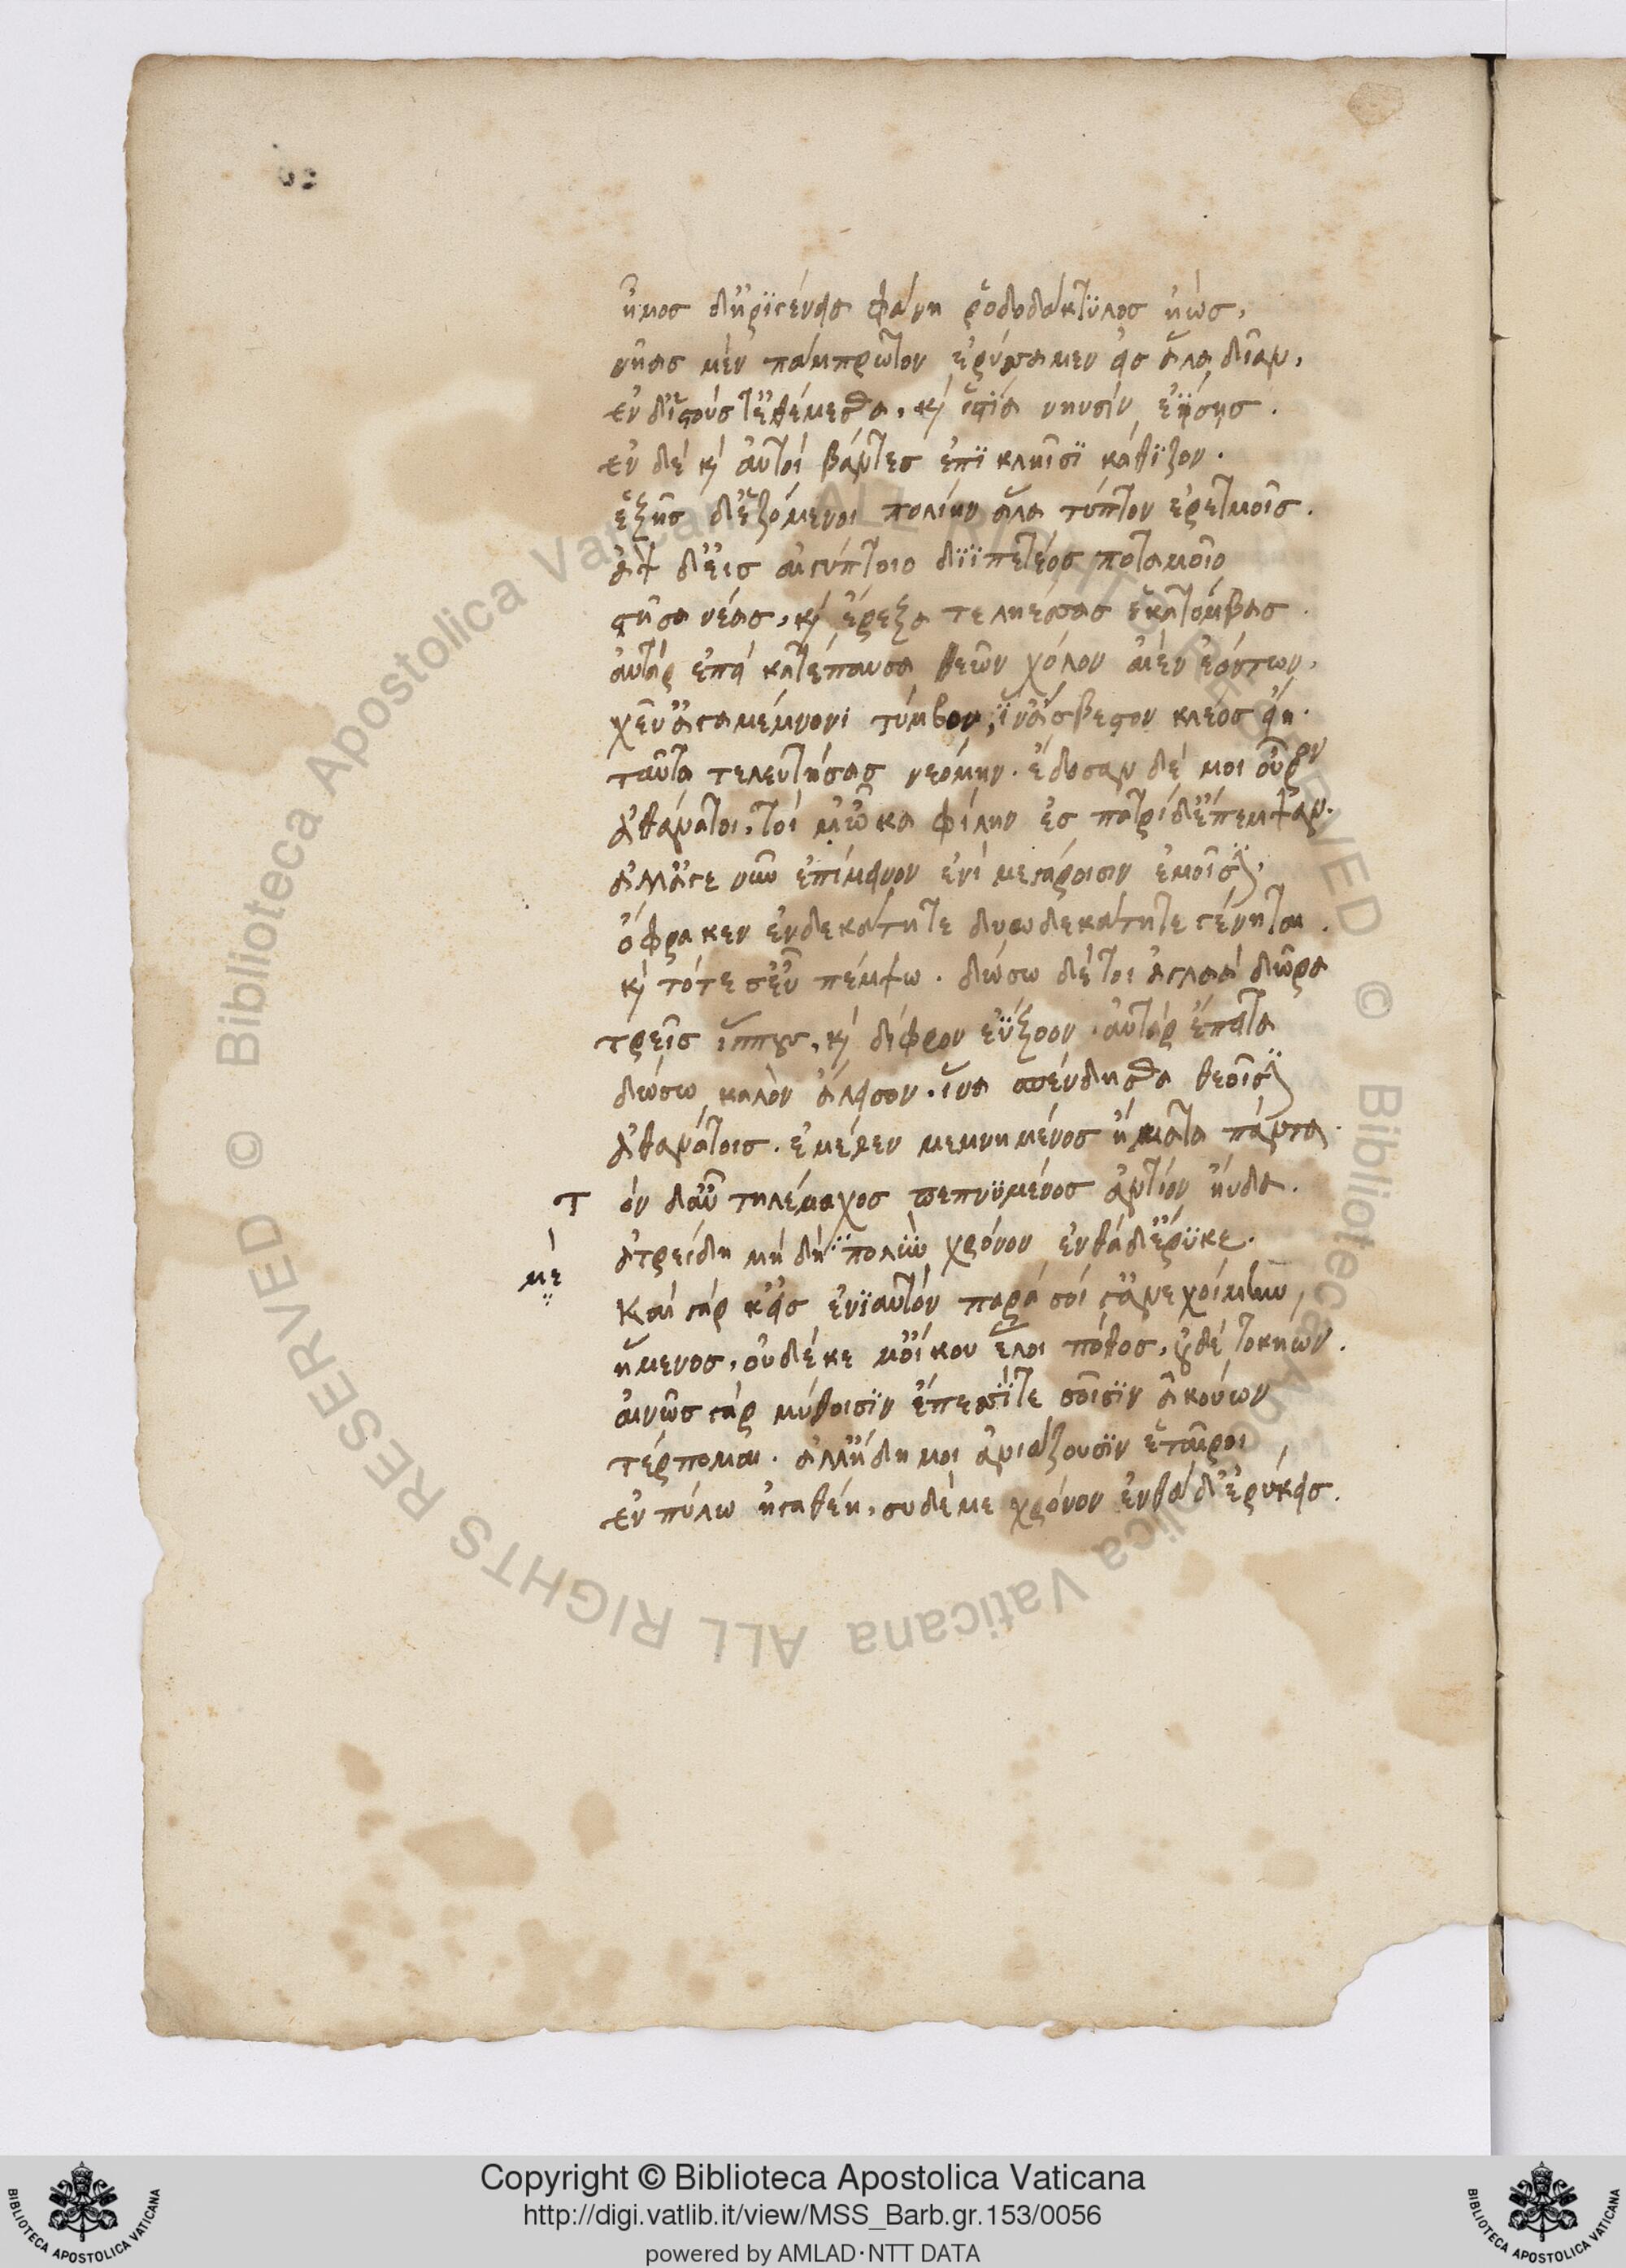 ἦμος δ' ἠριγένεια φάνη ῥοδοδάκτυλος ἠώς,
νῆας μὲν πάμπρωτον ἐρύσσαμεν εἰς ἅλα δῖαν,
ἐν δ' ἱστοὺς τ' ἐθέμεσθα, κὶ ἱστία νηυσὶν ἐΐσης.
ἐν δὲ κὶ αὐτοὶ βάντες ἐπὶ κληῖσι κάθιζον.
ἑξῆς δ' ἑζόμενοι πολιὴν ἅλα τύπτον ἐρετμοῖς.
ἂψ δ' εἰς αἰγύπτοιο διϊπετέος ποταμοῖο
στῆσα νέας, κὶ ἔρεξα τεληέσσας ἑκατόμβας.
αὐτὰρ ἐπεὶ κατέπαυσα θεῶν χόλον αἰὲν ἐόντων,
χεῦ' ἀγαμέμνονι τύμβον, ἵν' ἄσβεστον κλέος εἴη.
ταῦτα τελευτήσας νεόμην. ἔδοσαν δέ μοι οὖρον
ἀθάνατοι, τοί μ' ὦκα φίλην ἐς πατρίδ' ἔπεμψαν.
ἀλλ' ἄγε νῦν ἐπίμεινον ἐνὶ μεγάροισιν ἐμοῖσιν,
ὄφρα κεν ἑνδεκάτη τε δυωδεκάτη τε γένηται.
κὶ τότε σ' εὖ πέμψω. δώσω δέ τοι ἀγλαὰ δῶρα
τρεῖς ἵππους, κὶ δίφρον ἐΰξοον. αὐτὰρ ἔπειτα
δώσω καλὸν ἄλεισον. ἵνα σπένδησθα θεοῖσιν
ἀθανάτοις. ἐμέθεν μεμνημένος ἤματα πάντα.
Τ ὸν δ' αὖ τηλέμαχος πεπνυμένος ἀντίον ηὔδα.
ἀτρείδη μὴ δή πολὺν χρόνον ἐνθάδ' ἔρυκε.
μὲ
Καὶ γάρ κ' εἰς ἐνιαυτὸν παρὰ σοί γ' ἀνεχοίμην,
ἥμενος, οὐδέ κε μ' οἴκου ἕλοι πόθος, οὐδὲ τοκήων.
αἰνῶς γὰρ μύθοισιν ἔπεσσί τε σοῖσιν ἀκούων
τέρπομαι. ἀλλ' ἤδη μοι ἀνιάζουσιν ἑταῖροι,
ἐν πύλω ἠγαθέη, συ δέ με χρόνον ἐνθάδ' ἐρύκεις.
Copyright © Biblioteca Apostolica Vaticana
http://digi.vatlib.it/view/MSS_Barb.gr.153/0056
powered by AMLAD·NTT DATA